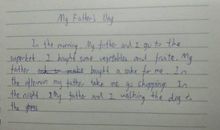 My Father's Day
In the morning. My father and I go to the
supermarket I bought some vegetables and fruits. My
father bought a cake for me. In
the afternoon my father take me go shopping. In
the night I My father and I walking the dog in
the